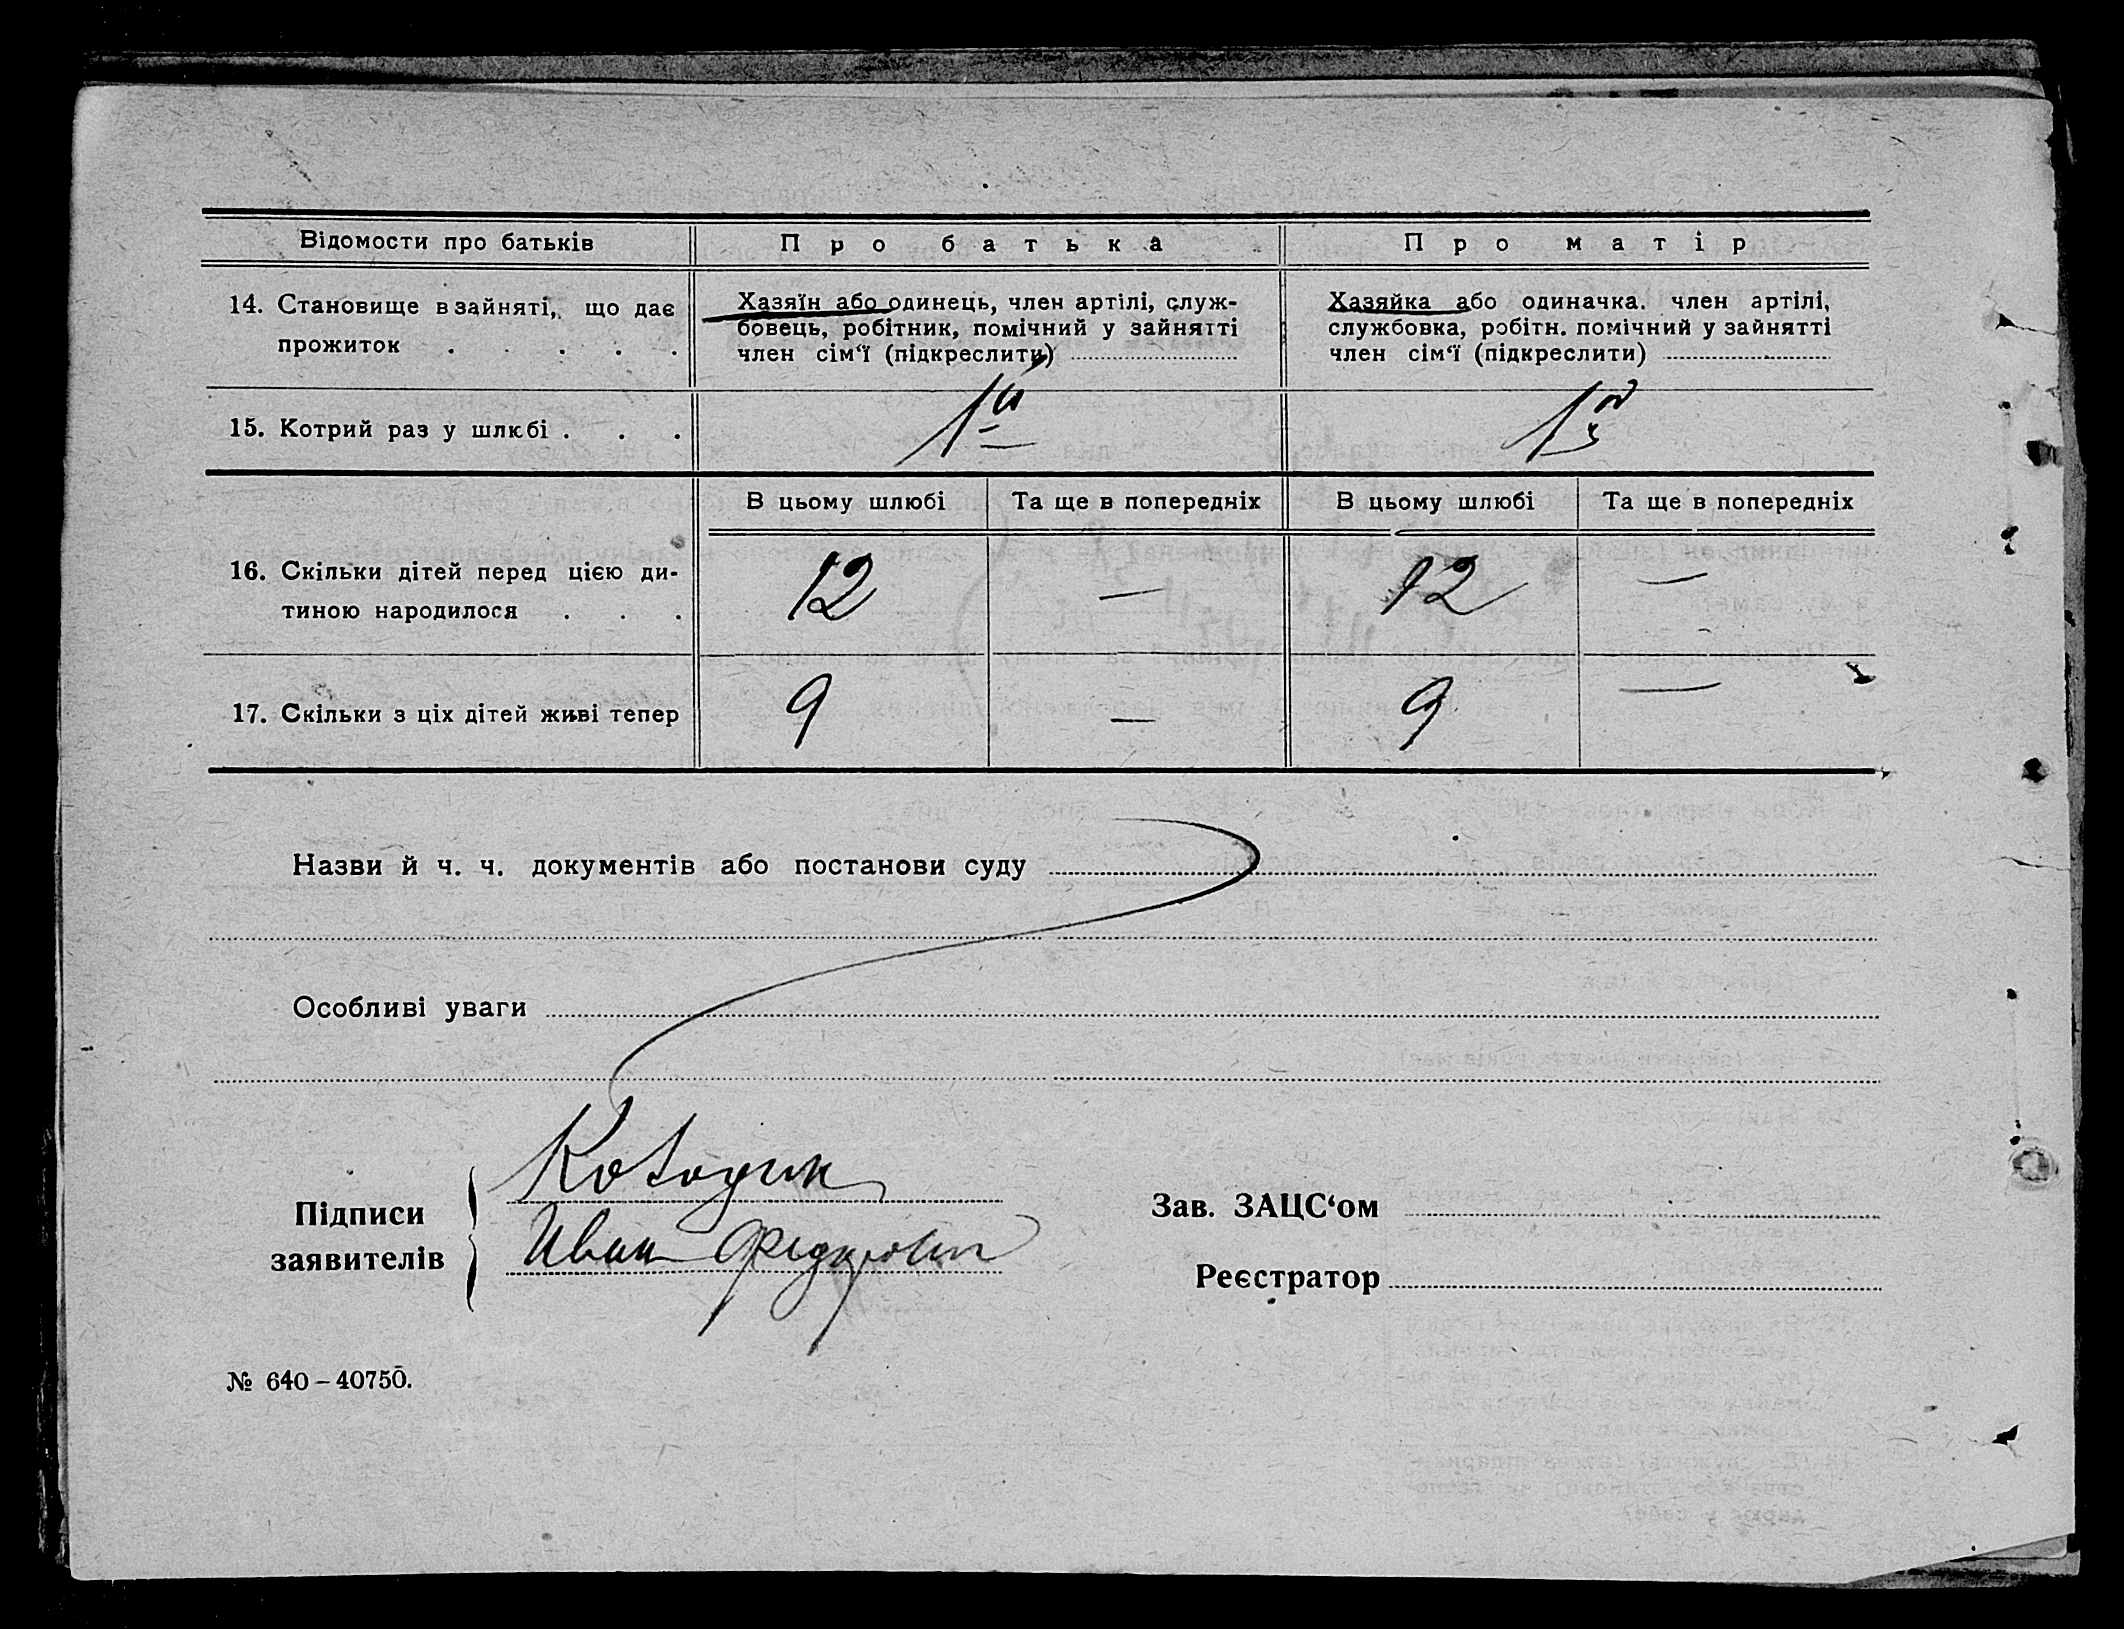 Відомости про батьків Про батька Про матір
14. Становище в зайняті, що дає прожиток . . . . .
Хазяїн або одинець, член артілі, служ-
бовець, робітник, помічний у зайнятті
член сім‘ї (підкреслити)
Хазяйка або одиначка. член артілі,
службовка, робітн. помічний у зайнятті
член сім‘ї (підкреслити)
15. Котрий раз у шлюбі . . . 1й 1й
В цьому шлюбі Та ще в попередніх В цьому шлюбі Та ще в попередніх
16. Скільки дітей перед цією ди-
тиною народилося . . . 12 — 12 —
17. Скільки з ціх дітей живі тепер 9 — 9 —
Назви й ч. ч. документів або постанови суду
Особливі уваги
Підписи
заявителів
Иван
Зав. ЗАЦС‘ом
Реєстратор
№ 640 – 40750.